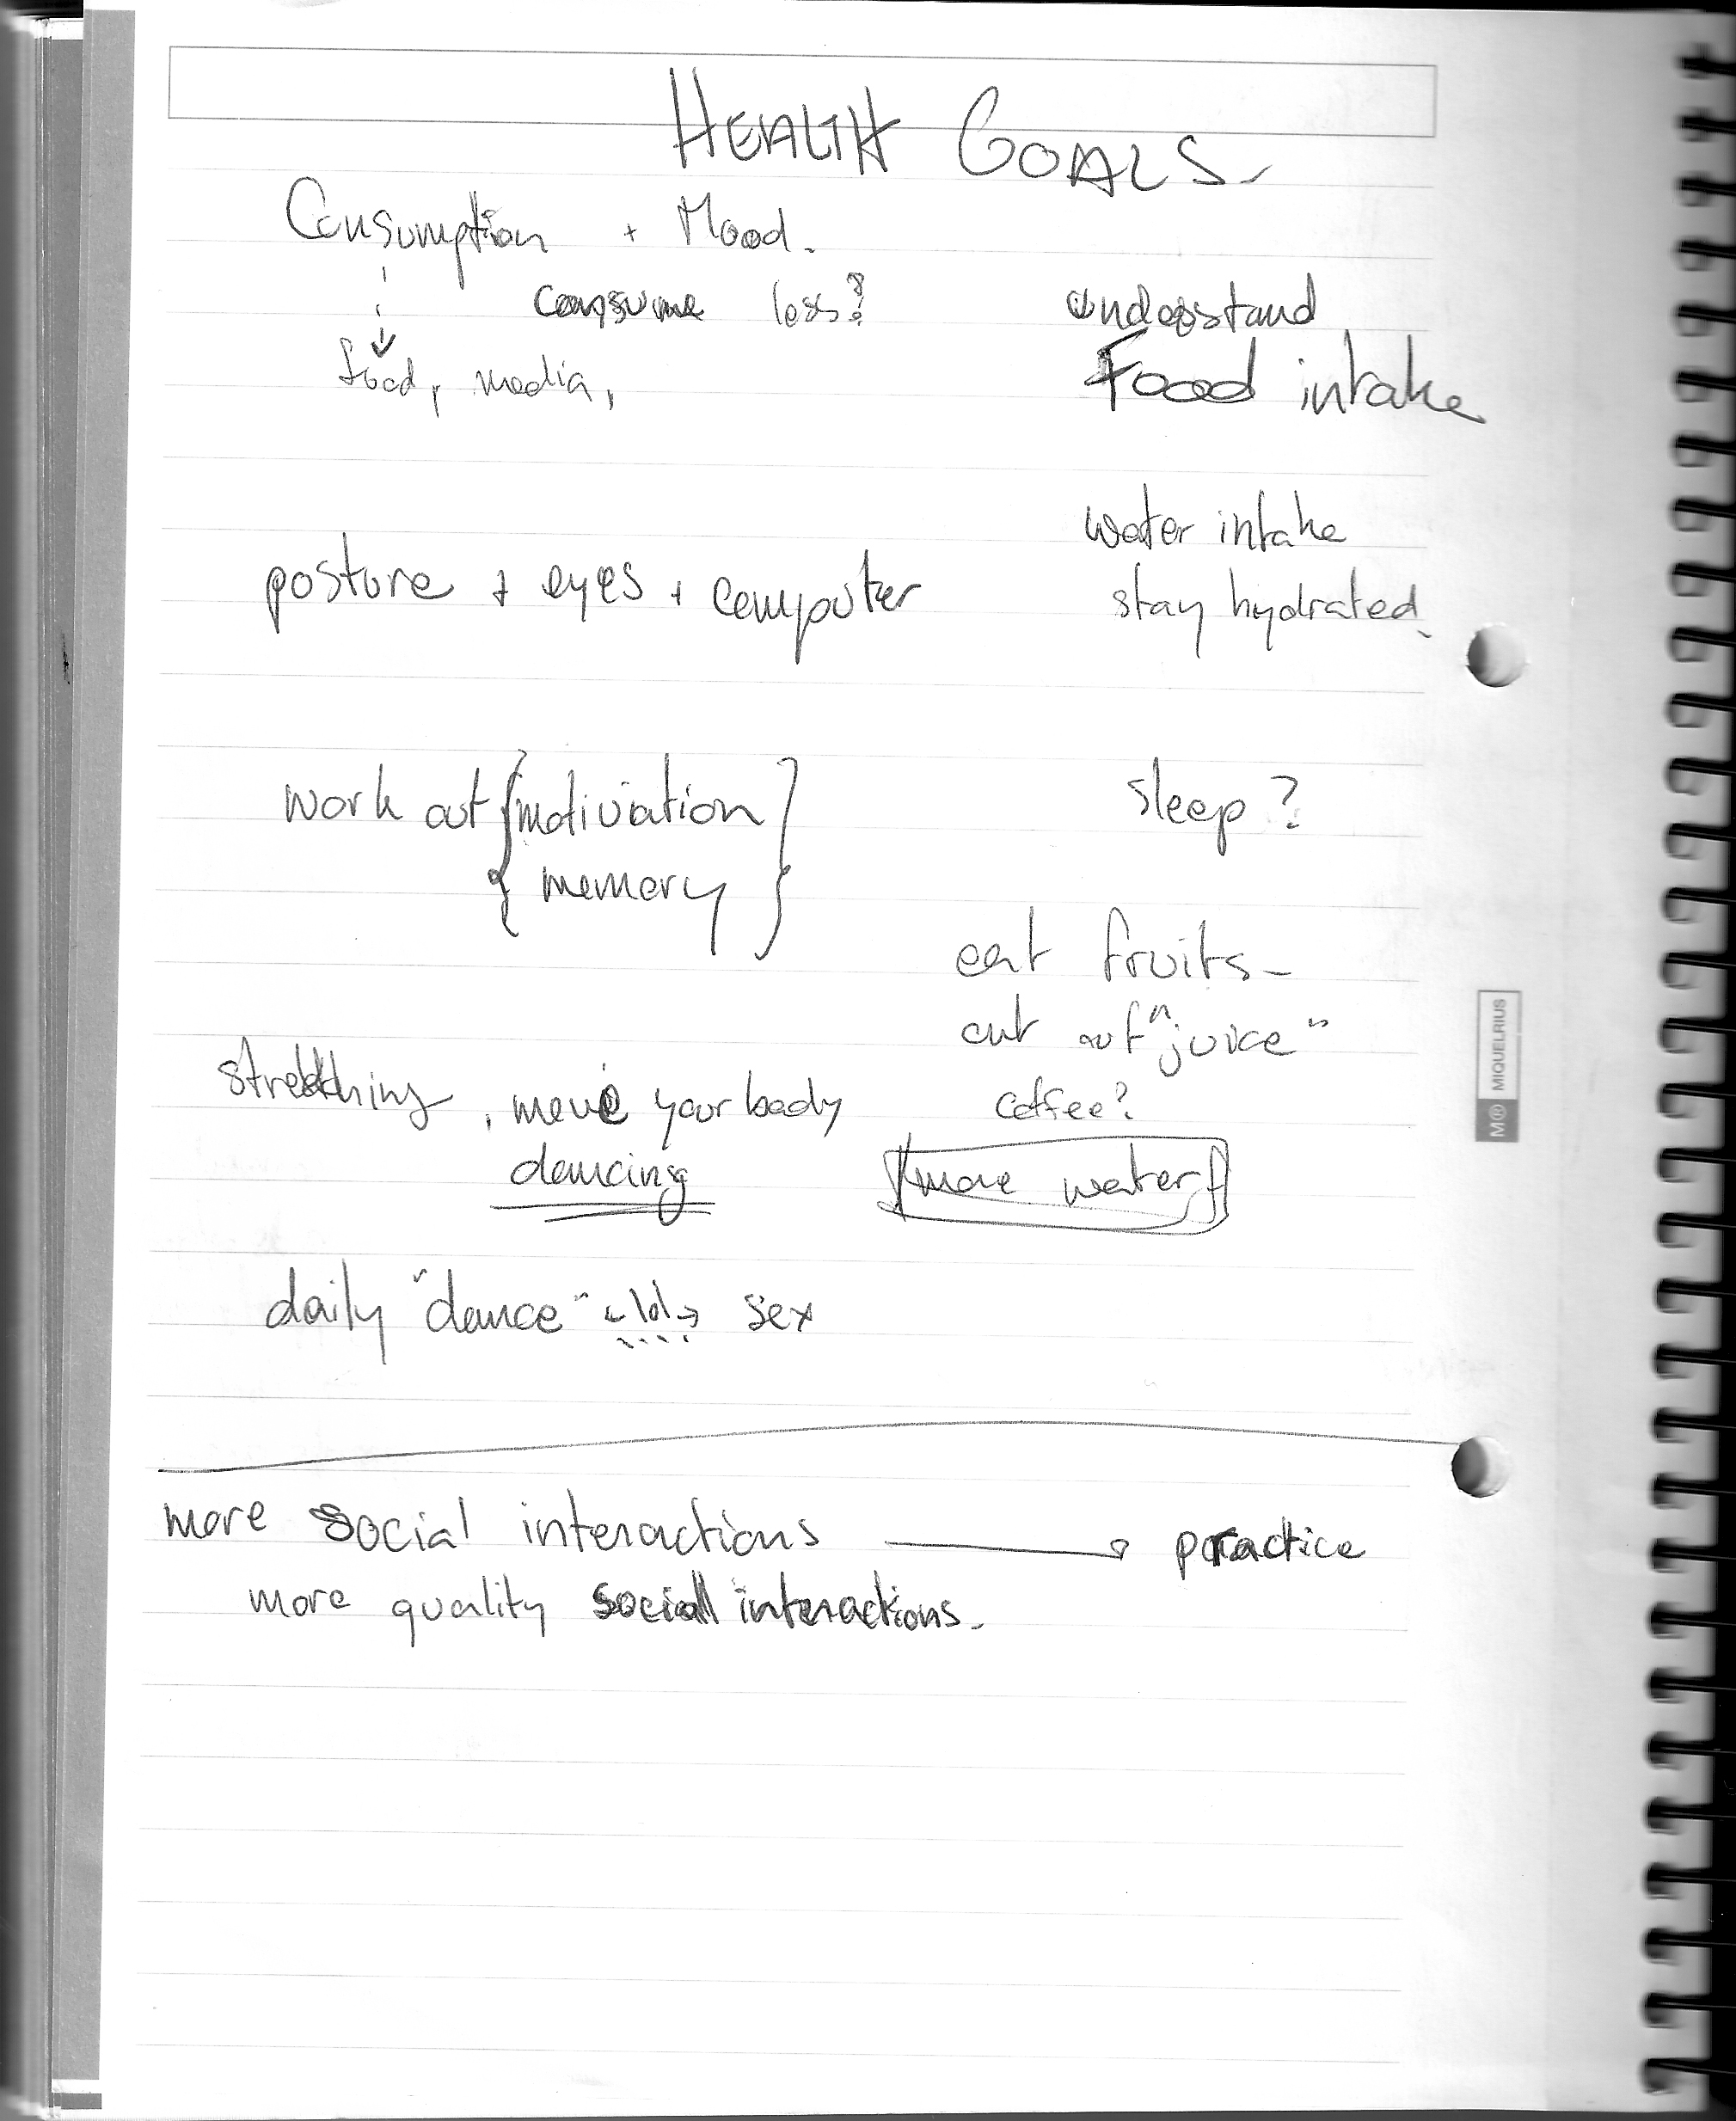 HEALTH GOALS
Consumption + Mood.
consume less?
food, media,
understand
Food intake
water intake
stay hydrated.
posture + eyes + computer
work out {motivation}
{ memory }
sleep ?
eat fruits
cut out "juice"
coffee?
{more water}
stretching, move your body
dancing
daily "dance" ←lol→ sex
more social interactions → practice
more quality social interactions.
MIQUELRIUS